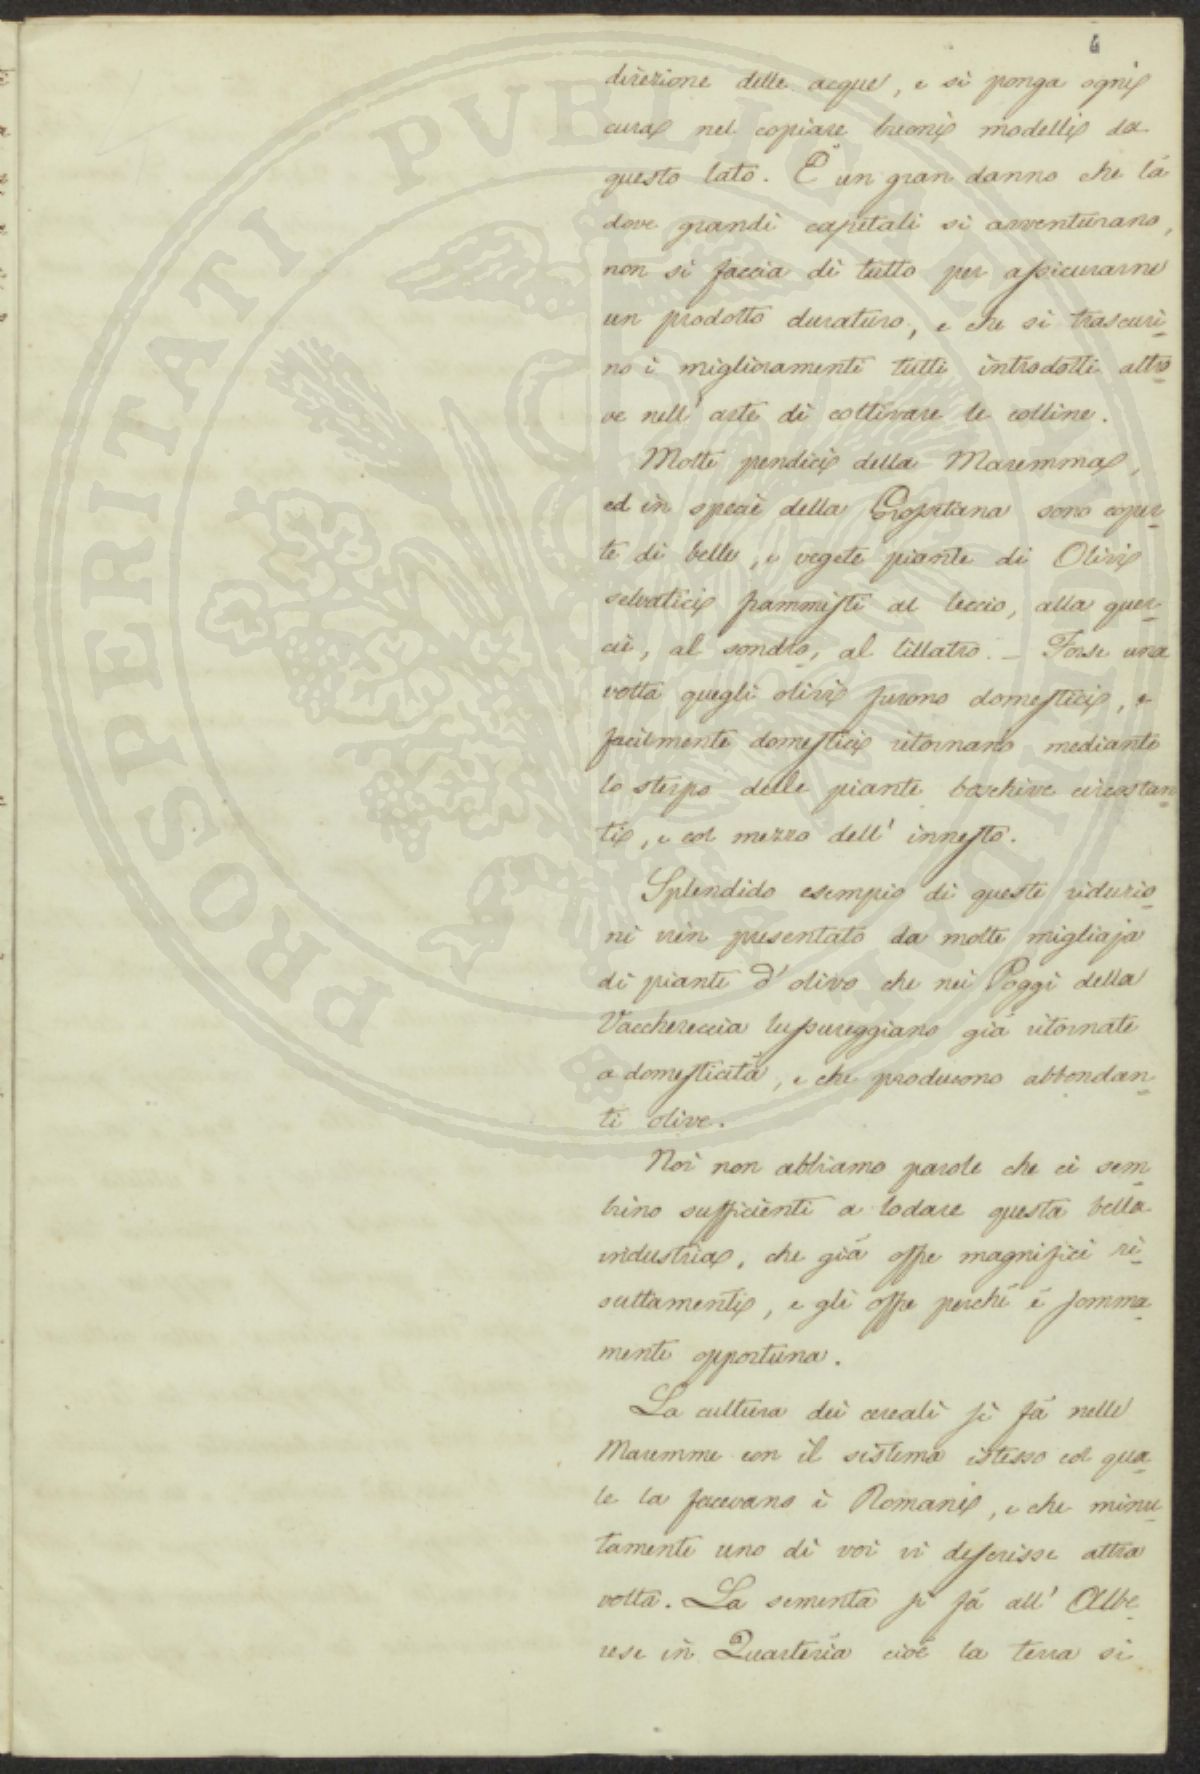 4
direzione delle acque, e si ponga ogni
cura nel copiare buoni modelli da
questo lato. È un gran danno che là
dove grandi capitali si avventurano,
non si faccia di tutto per assicurarne
un prodotto duraturo, e che si trascuri-
no i miglioramenti tutti introdotti altro-
ve nell' arte di coltivare le colline.
Molte pendici della Maremma,
ed in specie della Grossetana sono coper-
te di belle, e vegete piante di Olivi
selvatici frammisti al leccio, alla quer-
cie, al sondro, al lillatro. — Forse una
volta quegli olivi furono domestici, e
facilmente domestici ritornano mediante
lo sterpo delle piante boschive circostan-
ti, e col mezzo dell' innesto.
Splendido esempio di queste riduzio-
ni vien presentato da molte migliaja
di piante d' olivo che nei Poggi della
Vacchereccia lussureggiano già ritornate
a domesticità, e che producono abbondan-
ti olive.
Noi non abbiamo parole che ci sem-
brino sufficienti a lodare questa bella
industria, che già offre magnifici ri-
sultamenti, e gli offre perché é somma-
mente opportuna.
La cultura dei cereali si fá nelle
Maremme con il sistema istesso col qua-
le la facevano i Romani, e che minu-
tamente uno di voi vi descrisse altra
volta. La sementa si fá all' Albe-
rese in Quarteria cioé la terra si
PROSPERITATI PUBLICAE